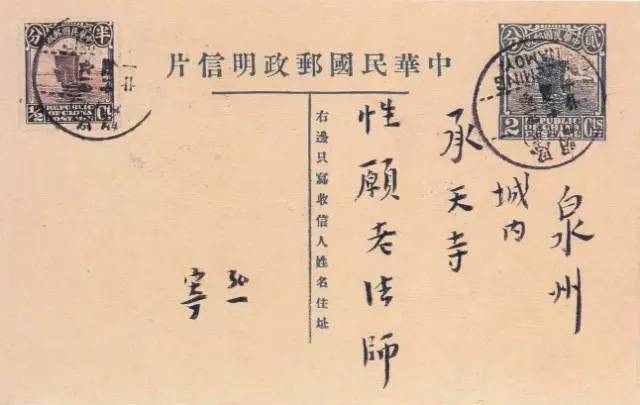 中華民國郵政明信片
貳分
2 CTS
泉州
城内
承天寺
性願老法師
右邊只寫收信人姓名住址
弘一
寄
半分
REPUBLIC
OF CHINA
1/2
AMOY